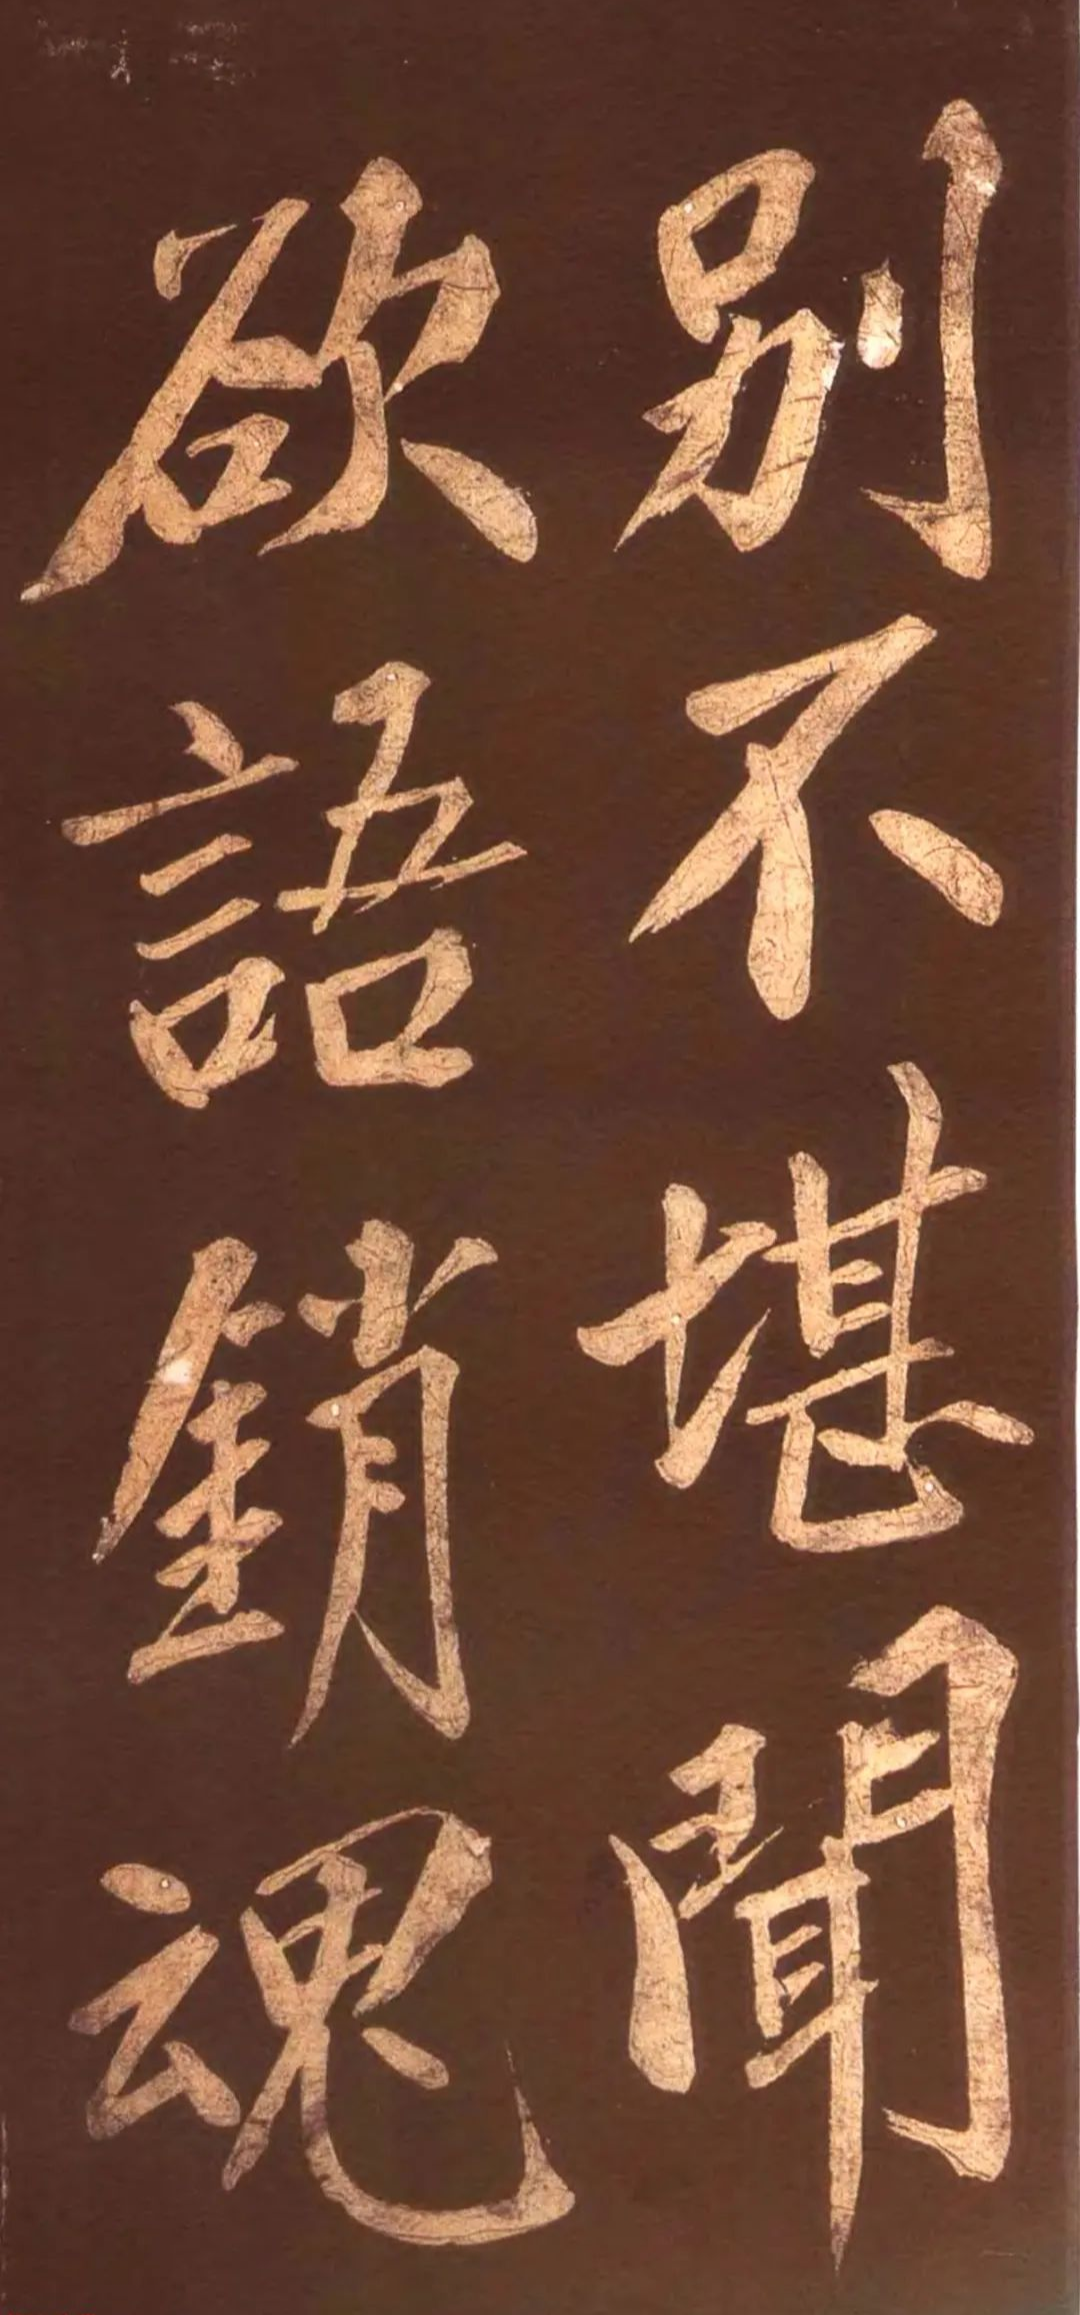 別不堪聞
欲語銷魂